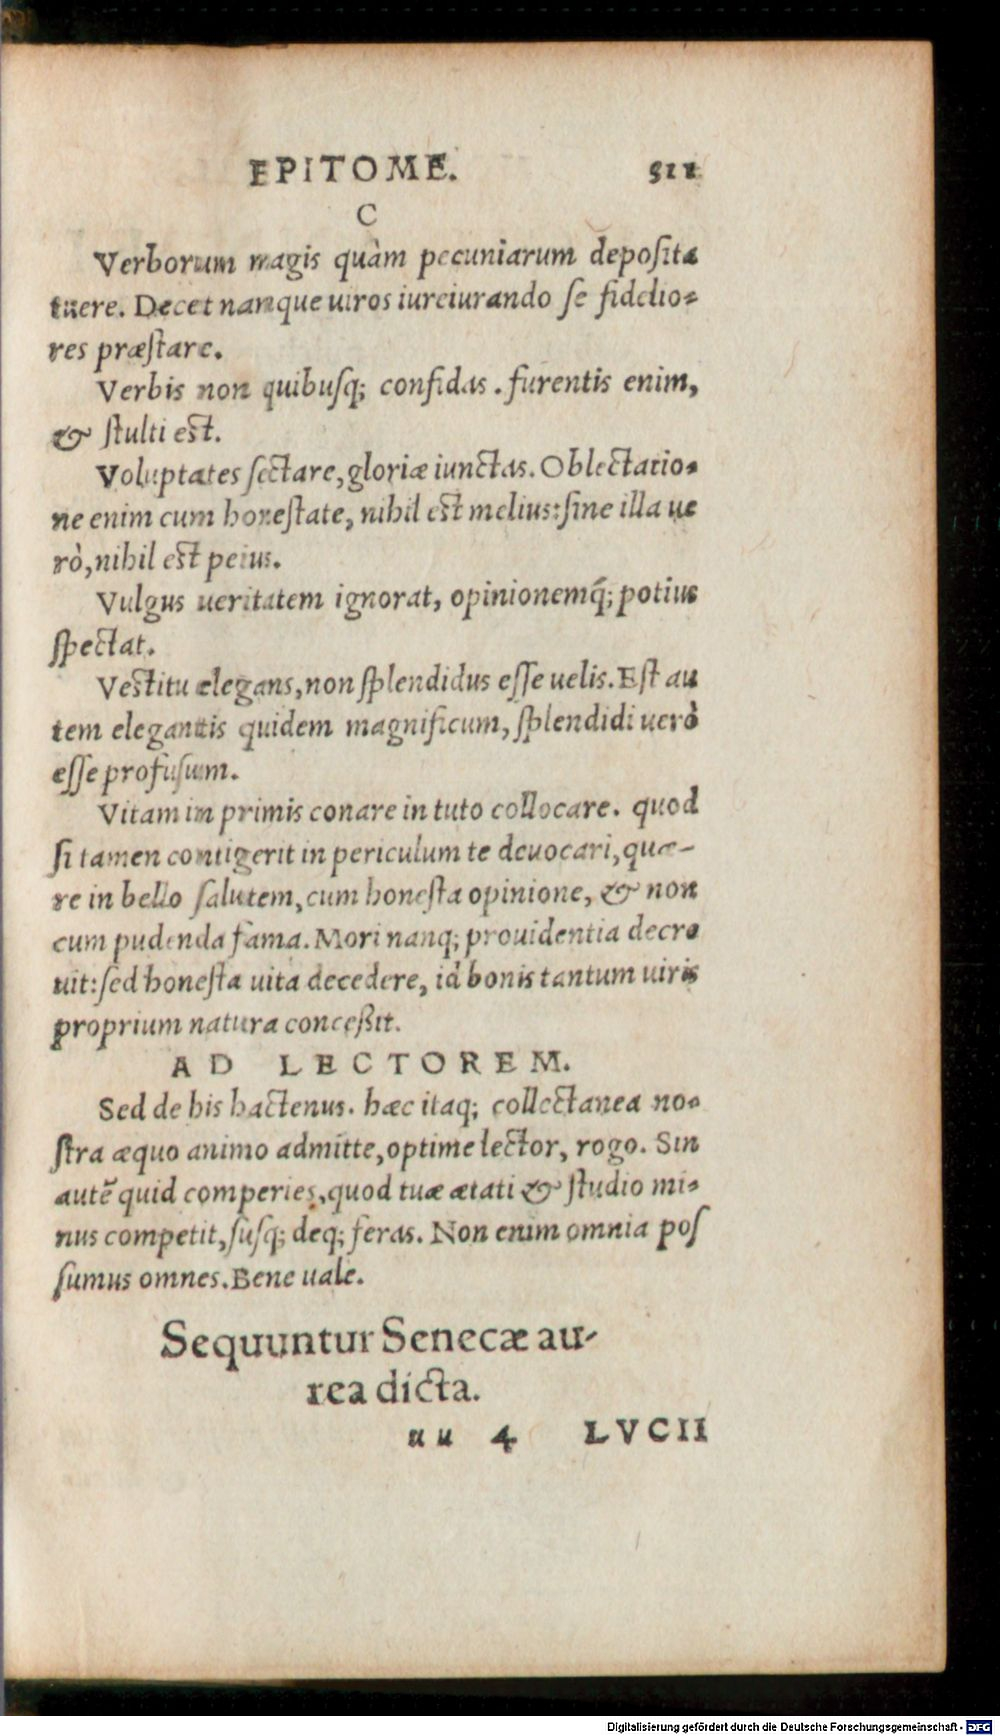 EPITOME. 511
C
Verborum magis quàm pecuniarum deposita
tuere. Decet nanque uiros iureiurando se fidelio=
res præstare.
Verbis non quibusq; confidas. furentis enim,
& stulti est.
Voluptates sectare, gloriæ iunctas. Oblectatio=
ne enim cum honestate, nihil est melius: sine illa ue
rò, nihil est peius.
Vulgus ueritatem ignorat, opinionemq́; potius
spectat.
Vestitu elegans, non splendidus esse uelis. Est au
tem elegantis quidem magnificum, splendidi uerò
esse profusum.
Vitam in primis conare in tuto collocare. quod
si tamen contigerit in periculum te deuocari, quæ-
re in bello salutem, cum honesta opinione, & non
cum pudenda fama. Mori nanq; prouidentia decre
uit: sed honesta uita decedere, id bonis tantum uiris
proprium natura conceßit.
AD LECTOREM.
Sed de his hactenus. hæc itaq; collectanea no=
stra æquo animo admitte, optime lector, rogo. Sin
autẽ quid comperies, quod tuæ ætati & studio mi=
nus competit, susq; deq; feras. Non enim omnia pos
sumus omnes. Bene uale.
Sequuntur Senecæ au-
rea dicta.
uu 4 LVCII
Digitalisierung gefördert durch die Deutsche Forschungsgemeinschaft - DFG